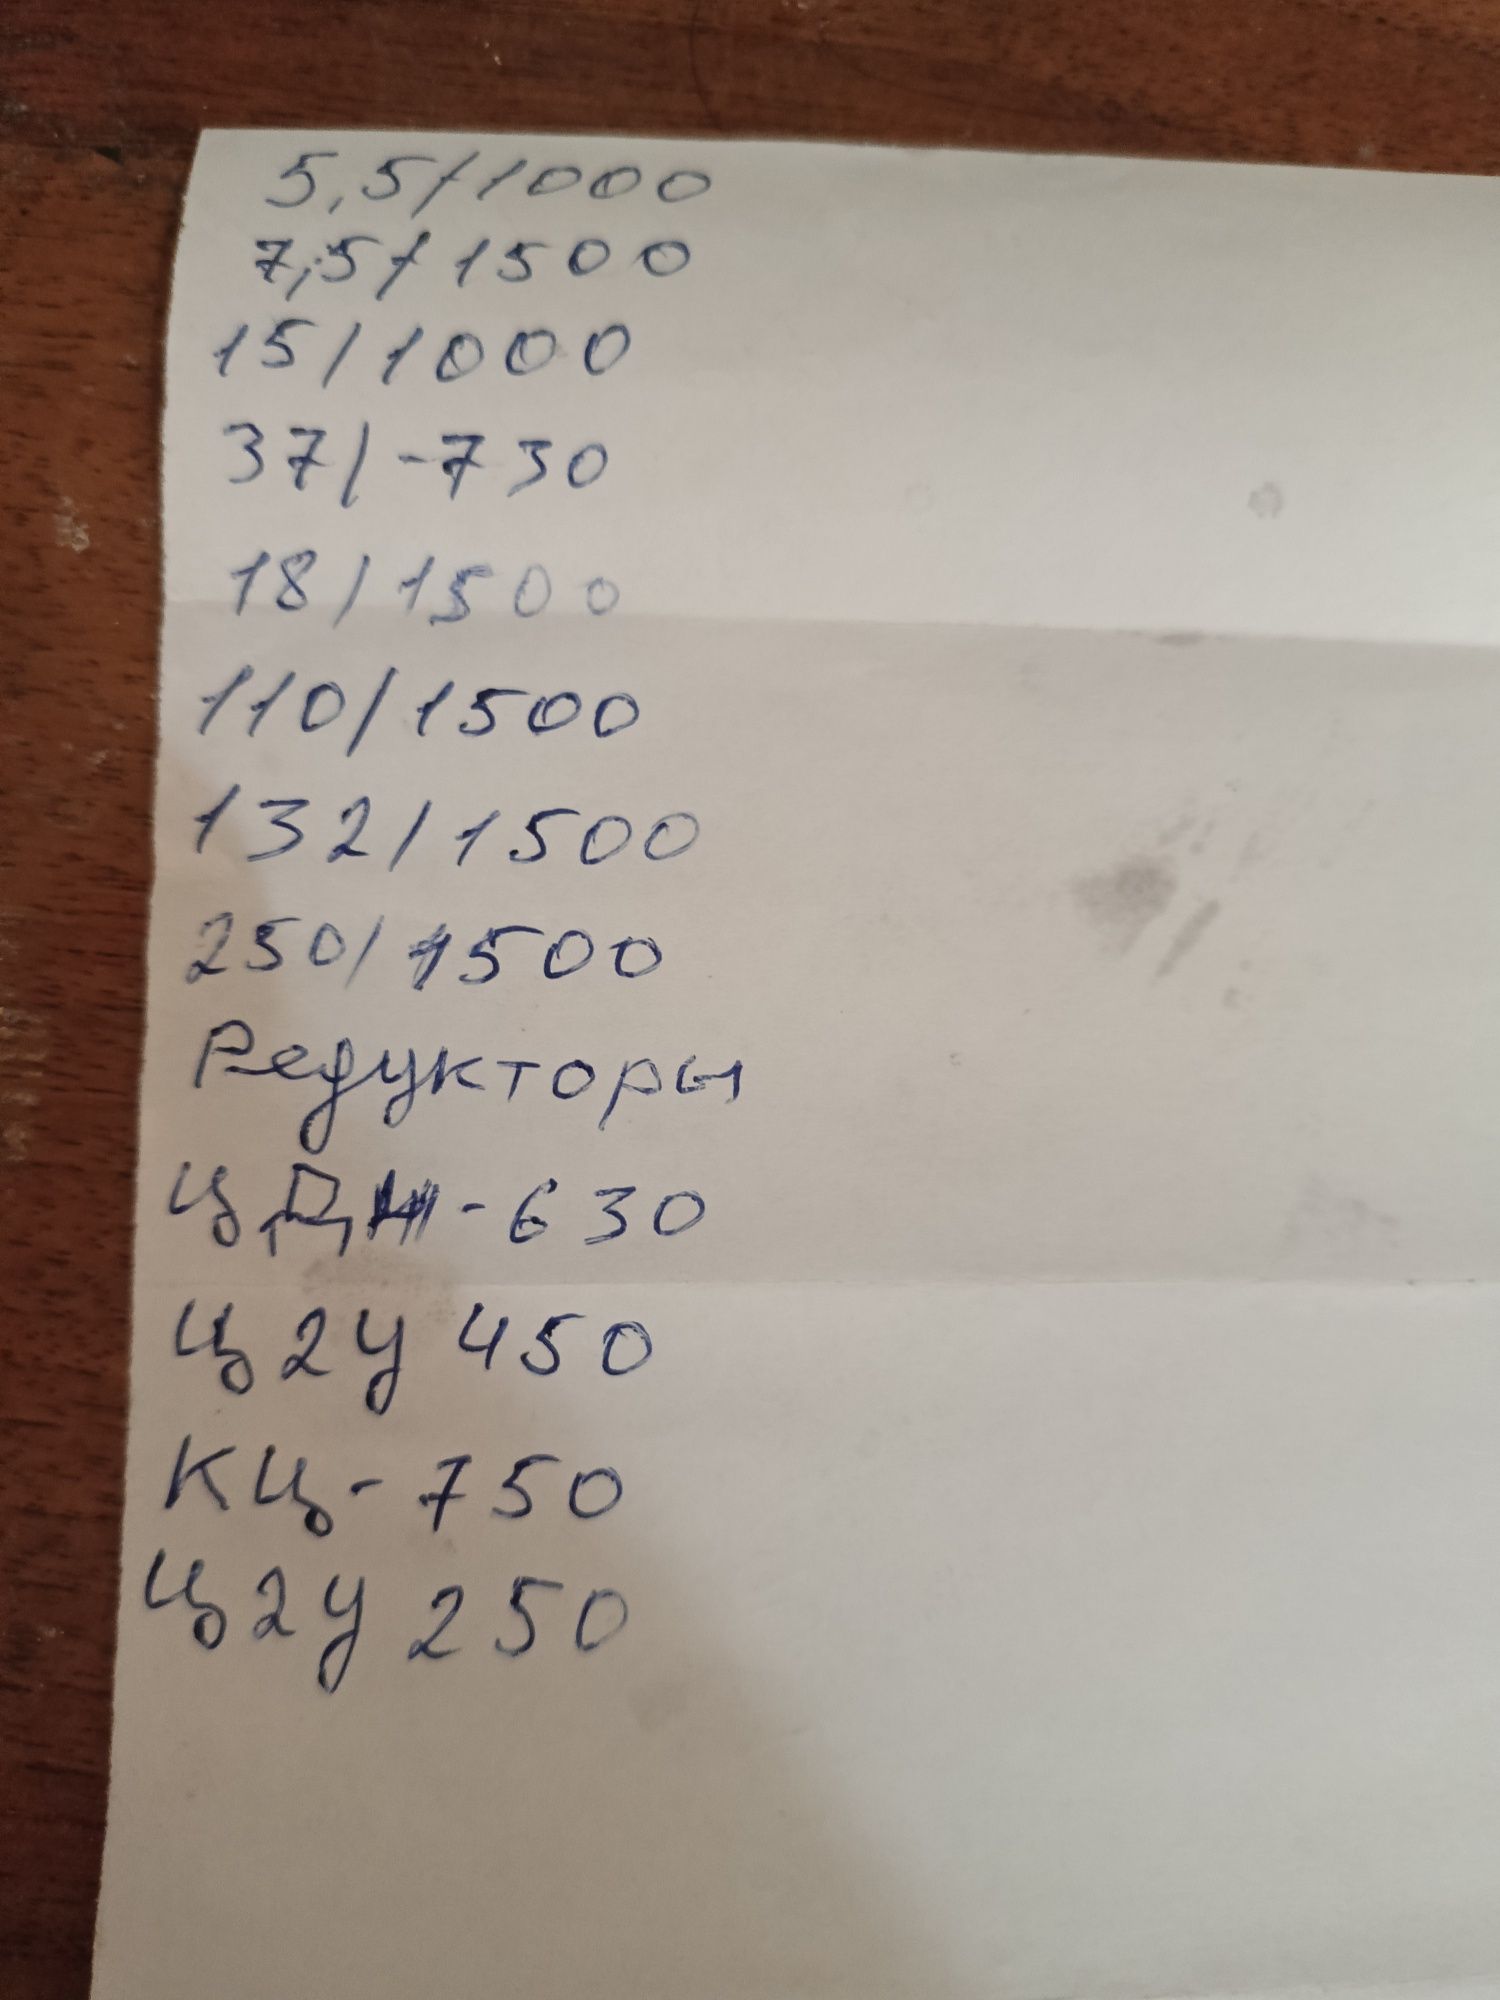 5,5/1000
7,5/1500
15/1000
37/-730
18/1500
110/1500
132/1500
250/1500
Редукторы
ЦДН-630
Ц2У 450
КЦ-750
Ц2У 250